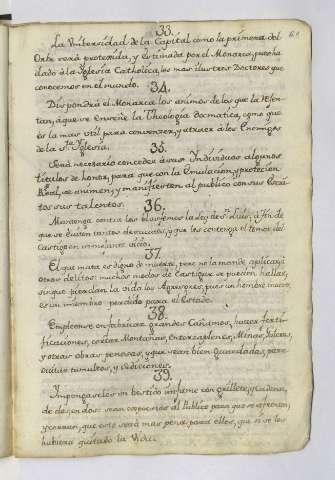 33.
La Universidad de la Capital como la primera del
Orbe será protexida, y estimada por el Monarca, pues ha
dado à la Iglesia Catholica, los mas ilustres Doctores que
conocemos en el mundo.
34.
Dispondrá el Monarca los animos de los que la
tan, à que se Enseñe la Theologia Docmatica, como que
es la mas util para convencer, y atraer à los Enemigos
de la Sta. Yglesia.
35.
Será necesario conceder à sus Individuos algunos
titulos de honor, para que con la Emulacion, y proteccion
Real, se animen, y manifiesten al publico con sus Escri
tos sus talentos.
36.
Mantenga contra los blasfemos la ley de Sn. Luis, à fin de
que se eviten tantos y que los contenga el temor del
Castigo en semejante vicio.
37
El que mata es digno de muerte, pero no la mande aplicar à
otros delitos: muchos modos de Castigar se pueden hallar,
sin que pierdan la vida los Agresores, pues un hombre muerto,
es un miembro perdido para el Estado.
38.
Empleense en fabricar grandes Caminos, hacer forti
ficaciones, cortar Montañas, Entrar Minas,
y otras obras penosas, y que sean bien Guardados, para
evitar tumultos, y sediciones.
39.
Ymponga seles un bestido infame con grillete, y cadena,
de dos en dos sean al Publico para que se afrenten,
y corran, que esto será mas pena para ellos, que si se les
hubiera quitado la Vida.